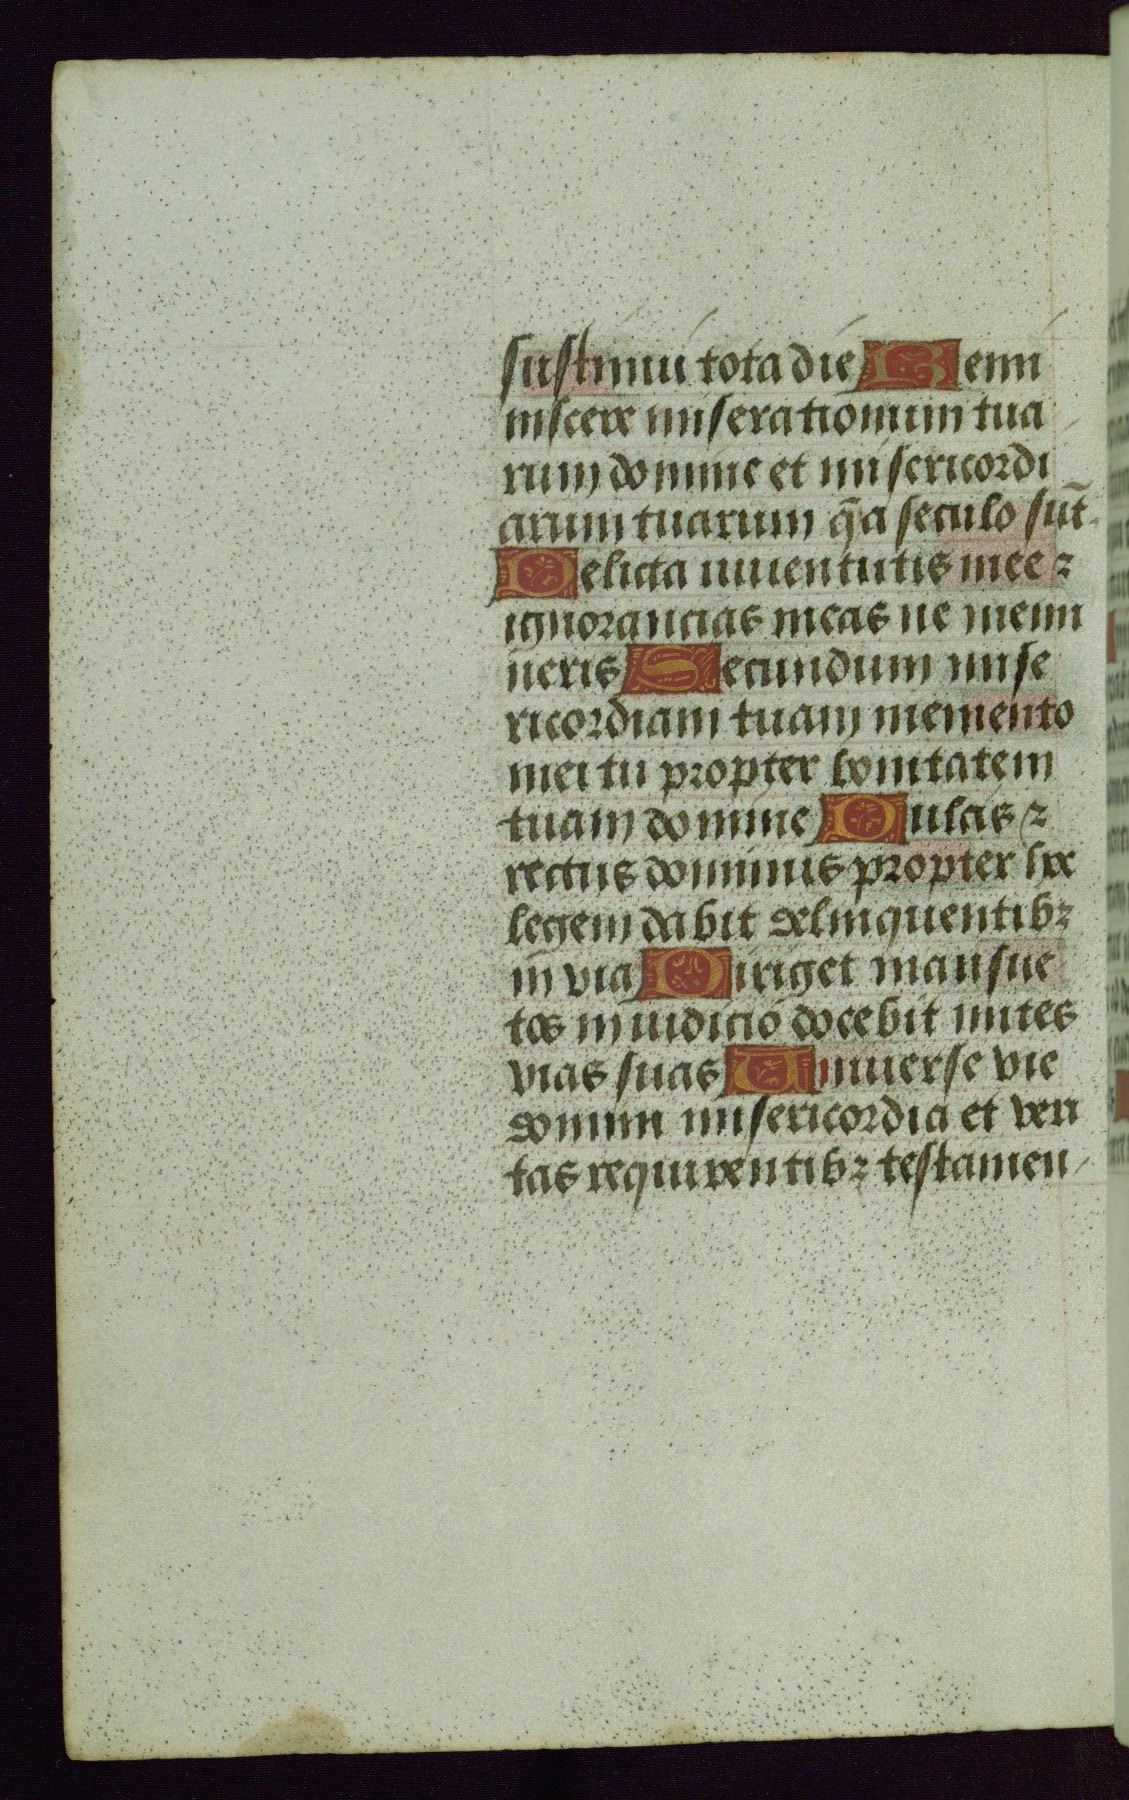 sustinui tota die Remi
niscere miserationum tua
rum domine et misericordi
arum tuarum q̄a seculo sūt.
Delicta iuuentutis mee ⁊
ignorancias meas ne memi
neris Secundum mise
ricordiam tuam memento
mei tu propter bonitatem
tuam domine Dulcis ⁊
rectus dominus propter hoc
legem dabit delinquentibꝫ
in via Diriget mansue
tos in iudicio docebit mites
vias suas Uniuerse vie
domini misericordia et veri
tas requirentibꝫ testamen